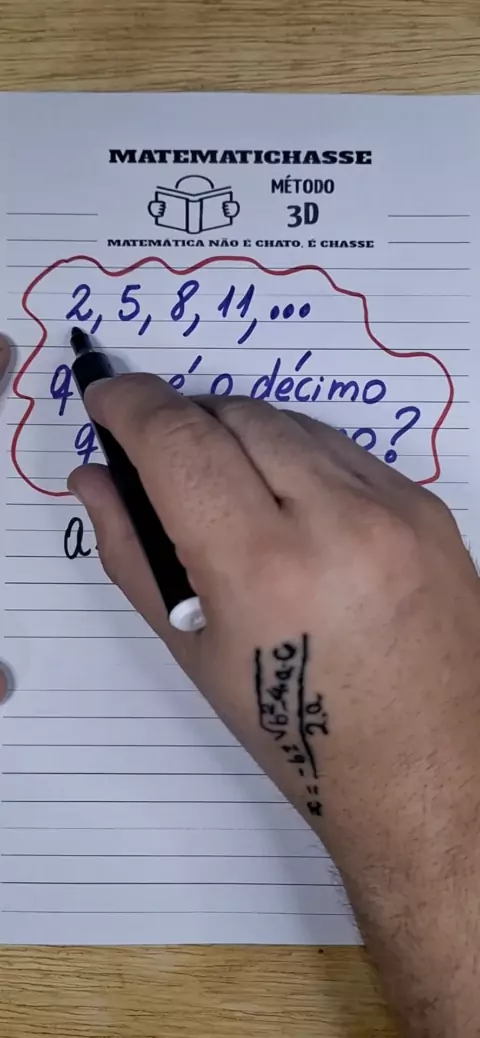 MATEMATICHASSE
MÉTODO
3D
MATEMÁTICA NÃO É CHATO, É CHASSE
2, 5, 8, 11, ...
é o décimo
?
a
x = -b ± √b² - 4.a.c
2.a